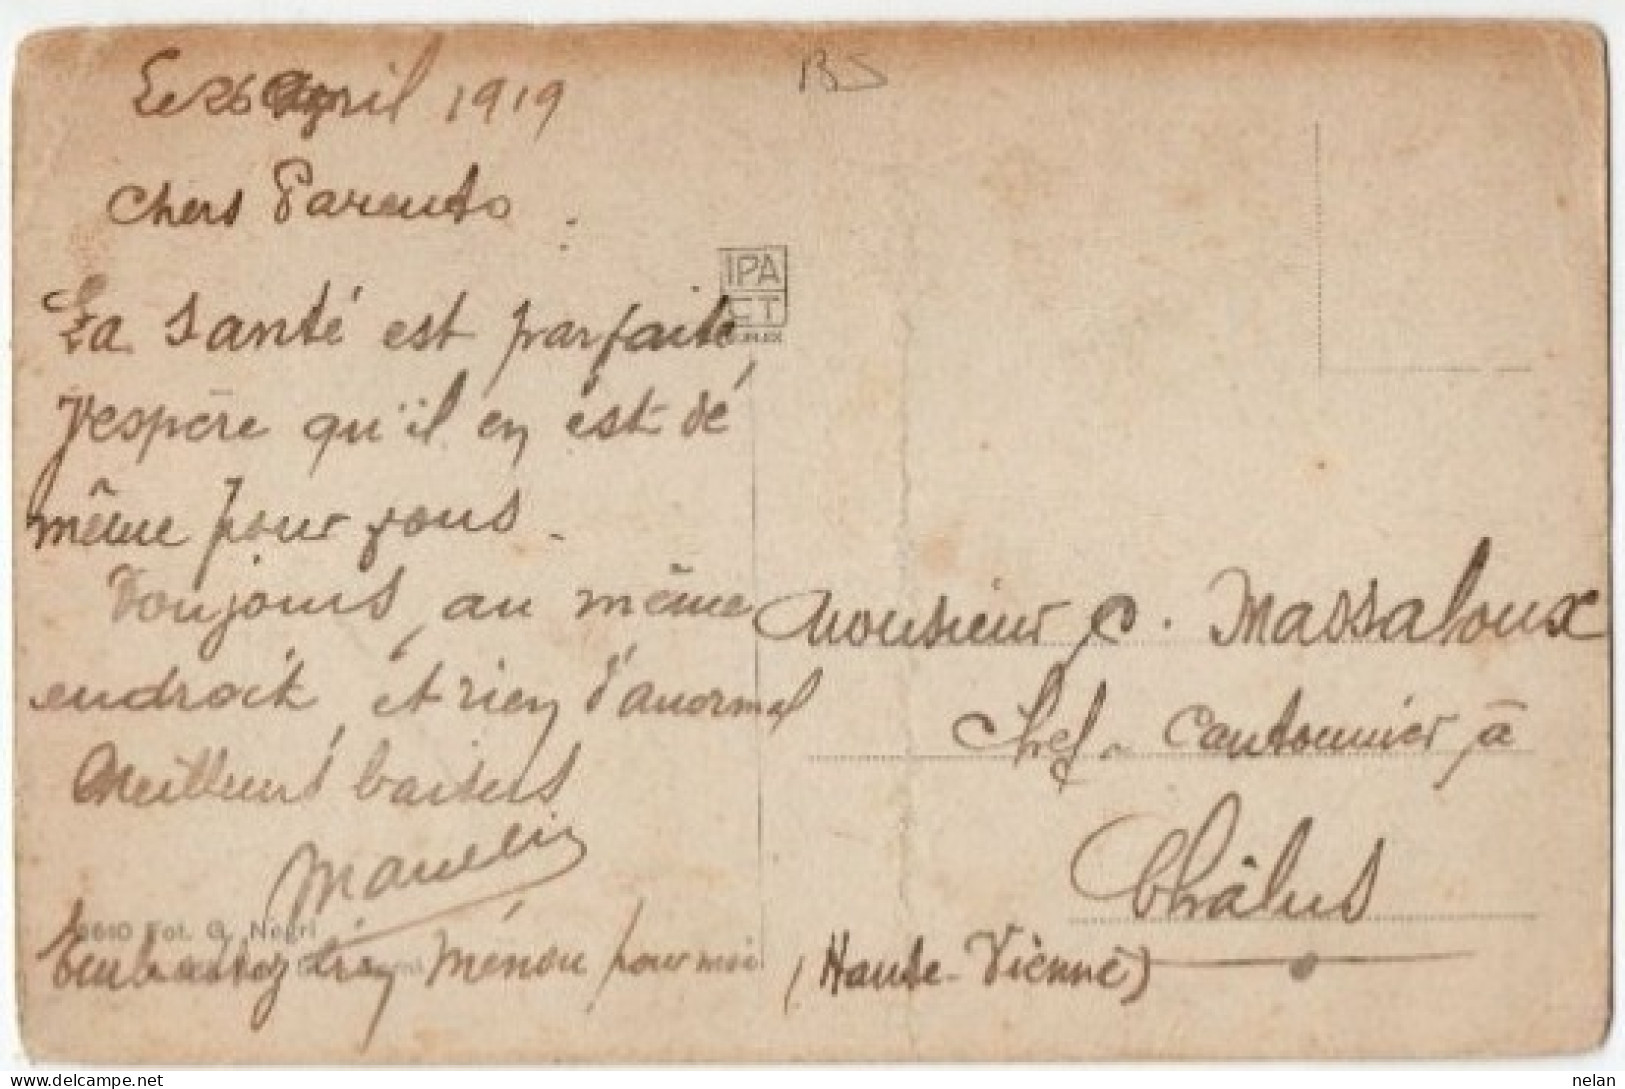 Le 26 April 1919
Chers Parents.
La santé est parfaite
J'espère qu'il en est de
même pour vous.
Toujours au même
endroit et rien d'anormal
Meilleurs baisers
Embrassez bien Ménou pour moi
BS
IPA
CT
3610 Fot. G. Negri
Monsieur P. Massaloux
Chef-Cantonnier à
Châlus
(Haute-Vienne)
nelan